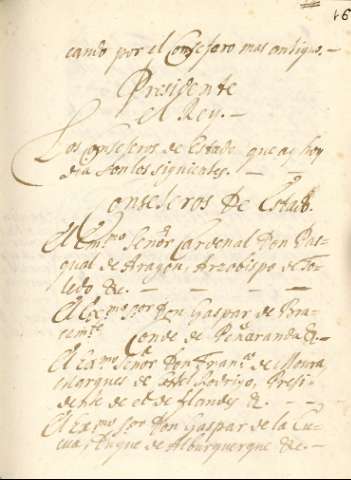 16
cando por el Consejero mas antiguo.—
Presidente
el Rey.—
Los Consejeros de Estado que ay hoy
dia son los siguientes.— — —
Consejeros De Estado.
El Em.mo Señor Cardenal Don Pas-
qual de Aragon, Arzobispo de To-
ledo &c.— — — —
El Ex.mo S.or Don Gaspar de Bra-
camte. Conde de Peñaranda &.—
El Ex.mo Señor Don Fran.co de Moura,
Marques de Castel Rodrigo, Presi-
dente de et.de flandes &.— — —
El Ex.mo S.or Don Gaspar de la Cu-
eva, Duque de Alburquerque &c.—